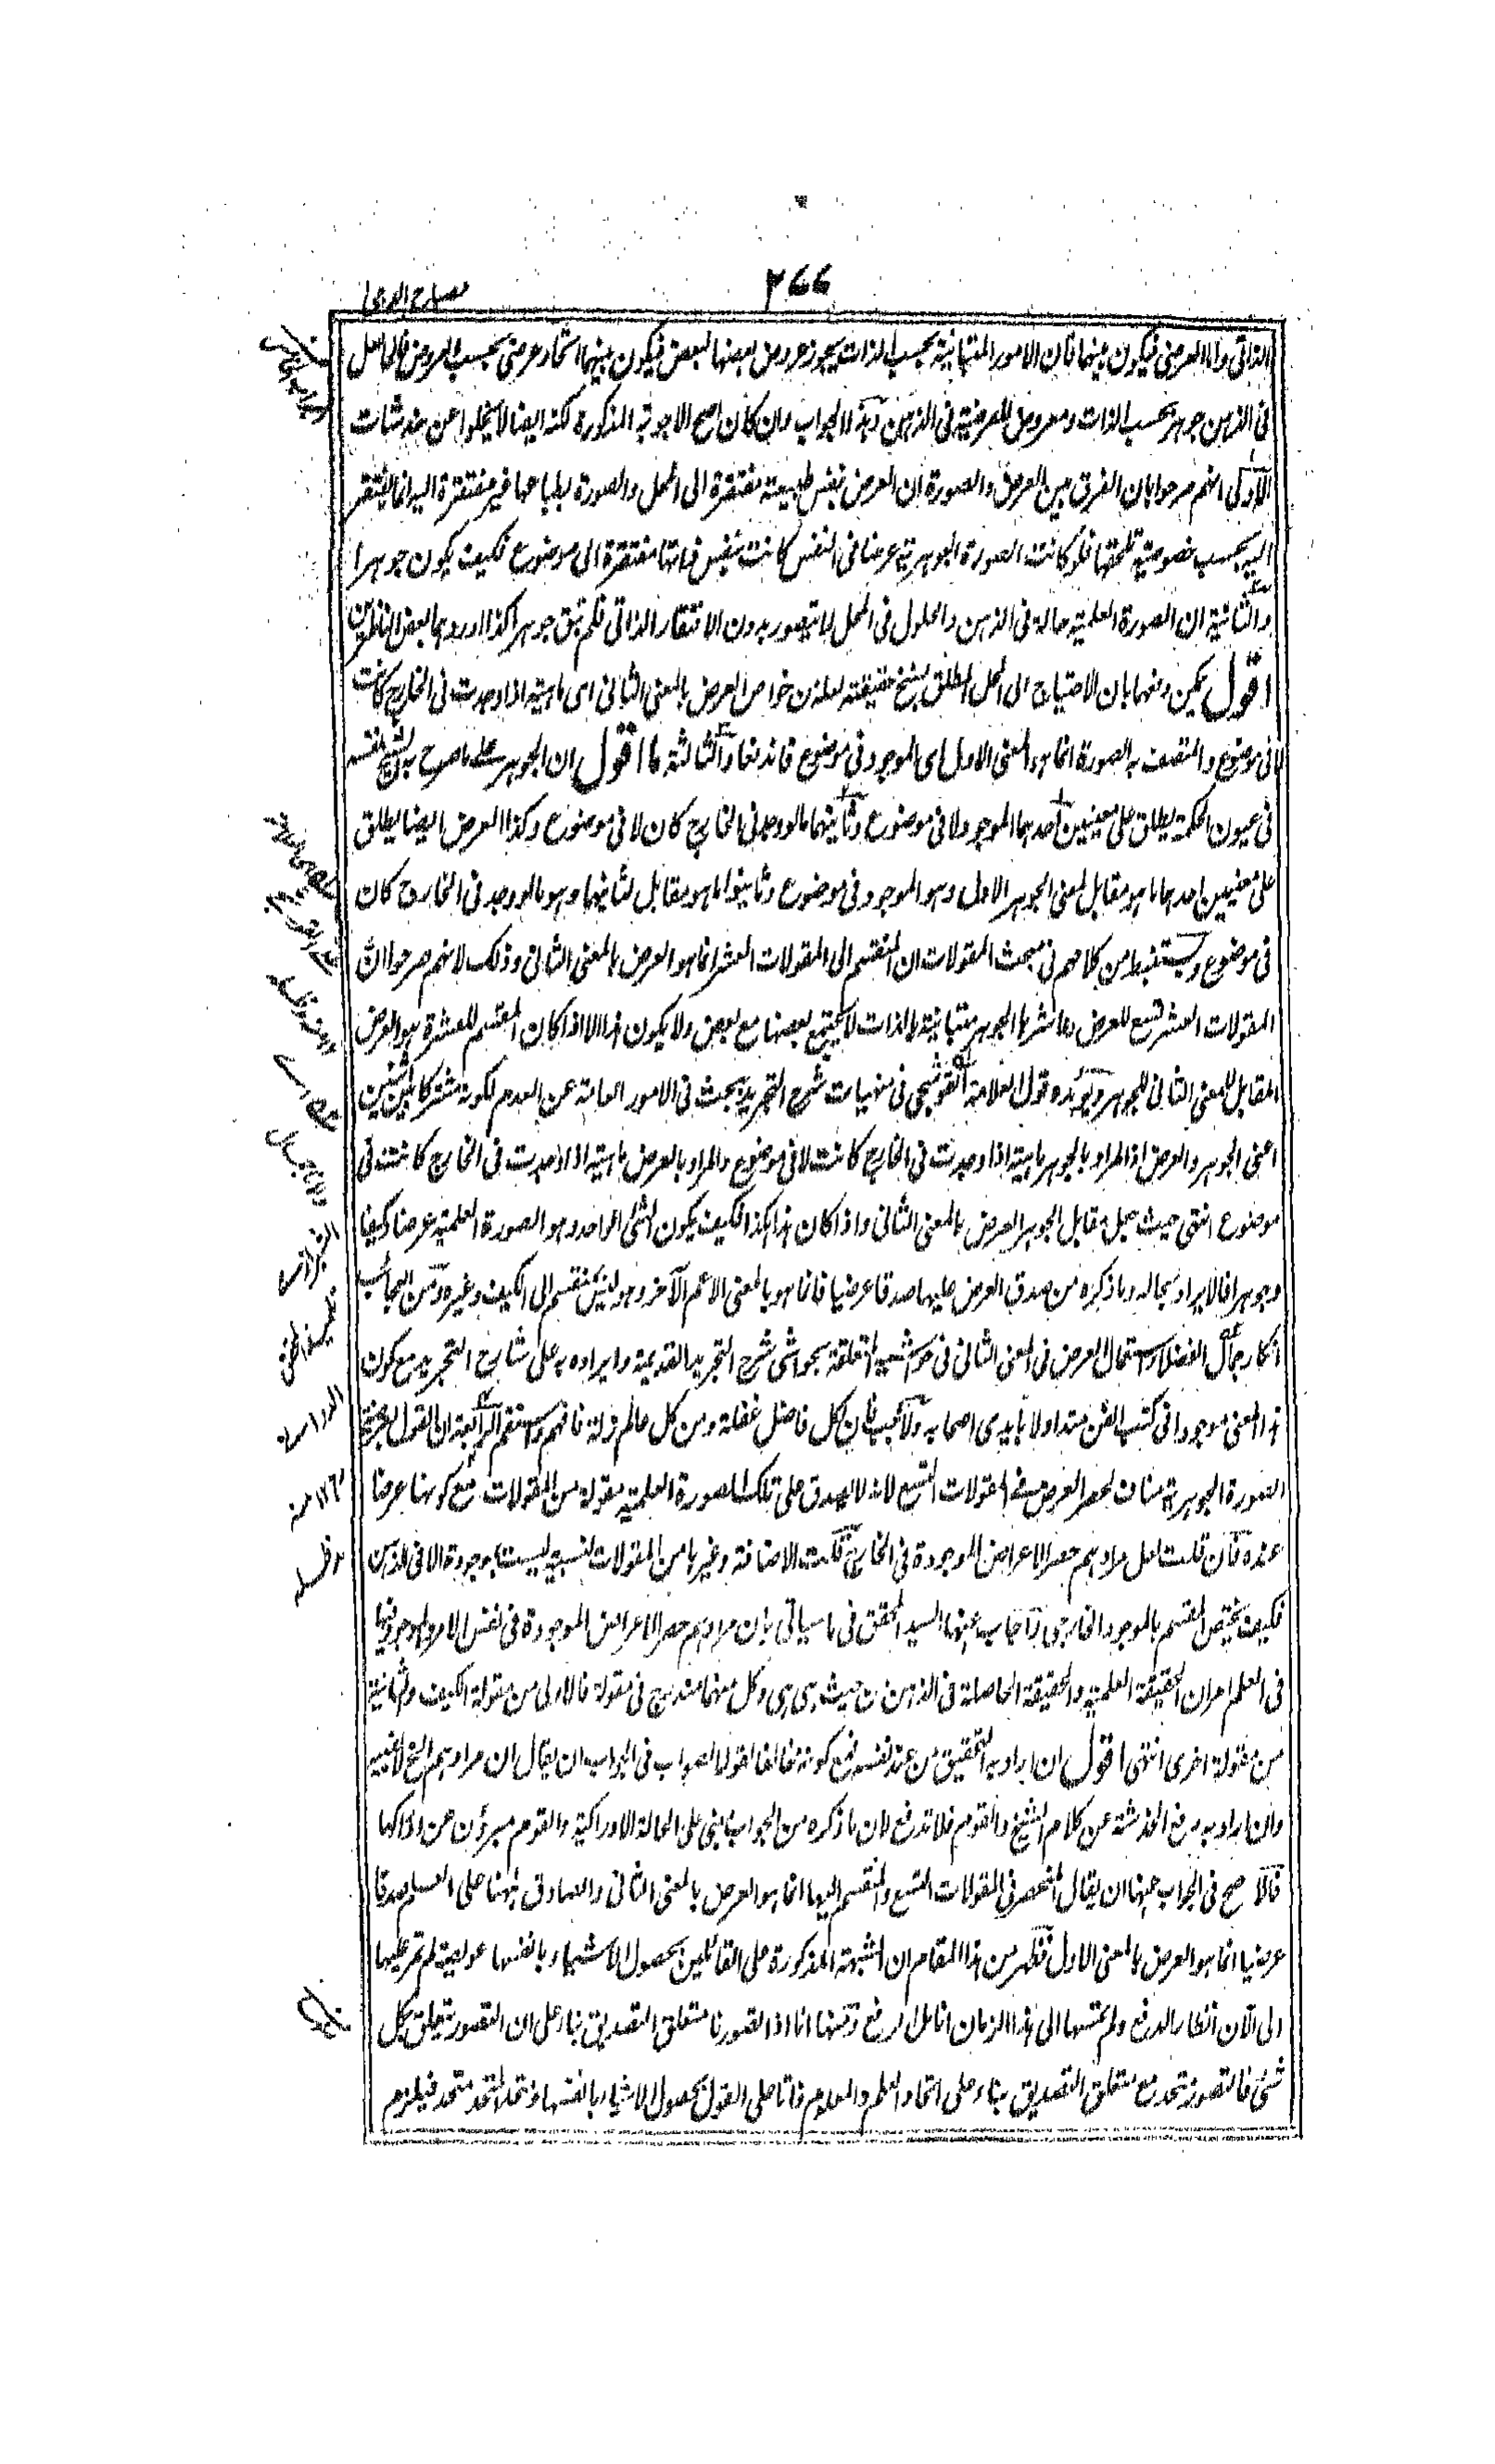 ٢٦٦
مصباح الدجى
الذاتى واما العرضى فيكون بينهما فان الامور المتباينة بحسب الذات يجوز عروض بعضها لبعض فيكون بينهما اتحاد عرضى بحسب العروض فالحاصل
فى الذهن جوهر بحسب الذات ومعروض للعرضية فى الذهن وهذا الجواب وان كان اصح الاجوبة المذكورة لكنه ايضا لا يخلو عن خدشات
الاولى انهم صرحوا بان الفرق بين العرض والصورة ان العرض بنفس طبيعته مفتقرة الى المحل والصورة بطباعها غير مفتقرة اليه انما يفتقر
اليه بحسب خصوصية تلحقها فلو كانت الصورة الجوهرية عرضا فى النفس كانت بنفس ذاتها مفتقرة الى موضوع فكيف يكون جوهرا
والثانية ان الصورة العلمية حالة فى الذهن والحلول فى المحل لا يتصور بدون الافتقار الذاتى فلم تبق جوهرا كذا اوردهما بعض الناظرين
اقول يمكن دفعهما بان الاحتياج الى المحل المطلق بسنخ حقيقته لعله من خواص العرض بالمعنى الثانى اى ماهية اذا وجدت فى الخارج كانت
لا فى موضوع والمتصف به الصورة انما هو المعنى الاول اى الموجود فى موضوع فاندفعا والثالثة ما اقول ان الجوهر على ما صرح به الشيخ نفسه
فى عيون الحكمة يطلق على معنيين احدهما الموجود لا فى موضوع وثانيهما ما لو وجد فى الخارج كان لا فى موضوع وكذا العرض ايضا يطلق
على معنيين احدهما ما هو مقابل لمعنى الجوهر الاول وهو الموجود فى موضوع وثانيهما ما هو مقابل لثانيهما وهو ما لو وجد فى الخارج كان
فى موضوع ويستنبط من كلامهم فى مبحث المقولات ان المنقسم الى المقولات العشر انما هو العرض بالمعنى الثانى وذلك لانهم صرحوا ان
المقولات العشر تسع للعرض وعاشرها الجوهر متباينة بالذات لا يجتمع بعضها مع بعض ولا يكون هذا الا اذا كان المقسم للعشرة هو العرض
المقابل للمعنى الثانى للجوهر ويؤيده قول العلامة القوشجى فى منهيات شرح التجريد يبحث فى الامور العامة عن العدم لكونه مشتركا بين اثنين
اعنى الجوهر والعرض اذ المراد بالجوهر ماهية اذا وجدت فى الخارج كانت لا فى موضوع والمراد بالعرض ماهية اذا وجدت فى الخارج كانت فى
موضوع انتهى حيث جعل مقابل الجوهر العرض بالمعنى الثانى واذا كان هذا هكذا فكيف يكون الشئ الواحد وهو الصورة العلمية عرضا وكيفا
وجوهرا فالايراد بحاله وما ذكره من صدق العرض عليها صدقا عرضيا فانما هو بالمعنى الاعم الآخر وهو ليس ينقسم الى الكيف وغيره ومن العجائب
انكار جمال الفضلاء استعمال العرض فى المعنى الثانى فى حواشيه المتعلقة بحواشى شرح التجريد القديمة وايراده به على شارح التجريد مع كون
هذا المعنى موجودا فى كتب الفن متداولا بايدى اصحابه ولا عجب فان لكل فاضل غفلة ومن كل عالم زلة فافهم واستقم الرابعة ان القول بعرضية
الصورة الجوهرية مناف لحصر العرض فى المقولات التسع لانه لا يصدق على تلك الصورة العلمية مقولة من المقولات مع كونها عرضا
عنده فان قلت لعل مرادهم حصر الاعراض الموجودة فى الخارج قلت الاضافة وغيرها من المقولات النسبية ليست بموجودة الا فى الذهن
فكيف يختص المقسم بالموجود الخارجى واجاب عنها السيد المحقق فى ما سياتى بان مرادهم حصر الاعراض الموجودة فى نفس الامر والموجود فيها
فى العلم امران الحقيقة العلمية والحقيقة الحاصلة فى الذهن من حيث هى هى وكل منهما مندرج فى مقولة فالاولى من مقولة الكيف والثانية
من مقولة اخرى انتهى اقول ان اراد به التحقيق من عند نفسه فمع كونه مخالفا لقول الصواب فى الجواب ان يقال ان مرادهم الخ لا يفيد
وان اراد به دفع الخدشة عن كلام الشيخ والقوم فلا تدفع لان ما ذكره من الجواب مبنى على الحالة الادراكية والقوم مبرؤن عن ادراكها
فالاصح فى الجواب عنها ان يقال المنحصر فى المقولات التسع والمنقسم اليها انما هو العرض بالمعنى الثانى والصادق ههنا على العلم صدقا
عرضيا انما هو العرض بالمعنى الاول فظهر من هذا المقام ان الشبهة المذكورة على القائلين بحصول الاشياء بانفسها عويصة لم تمر عليها
الى الآن انظار الدفع ولم تمسها الى هذا الزمان انامل الرفع ومنها انا اذا تصورنا متعلق التصديق بناء على ان التصور يتعلق بكل
شئ فالتصور متحد مع متعلق التصديق بناء على اتحاد العلم والمعلوم ذاتا على القول بحصول الاشياء بانفسها ومتحد المتحد متحد فيلزم